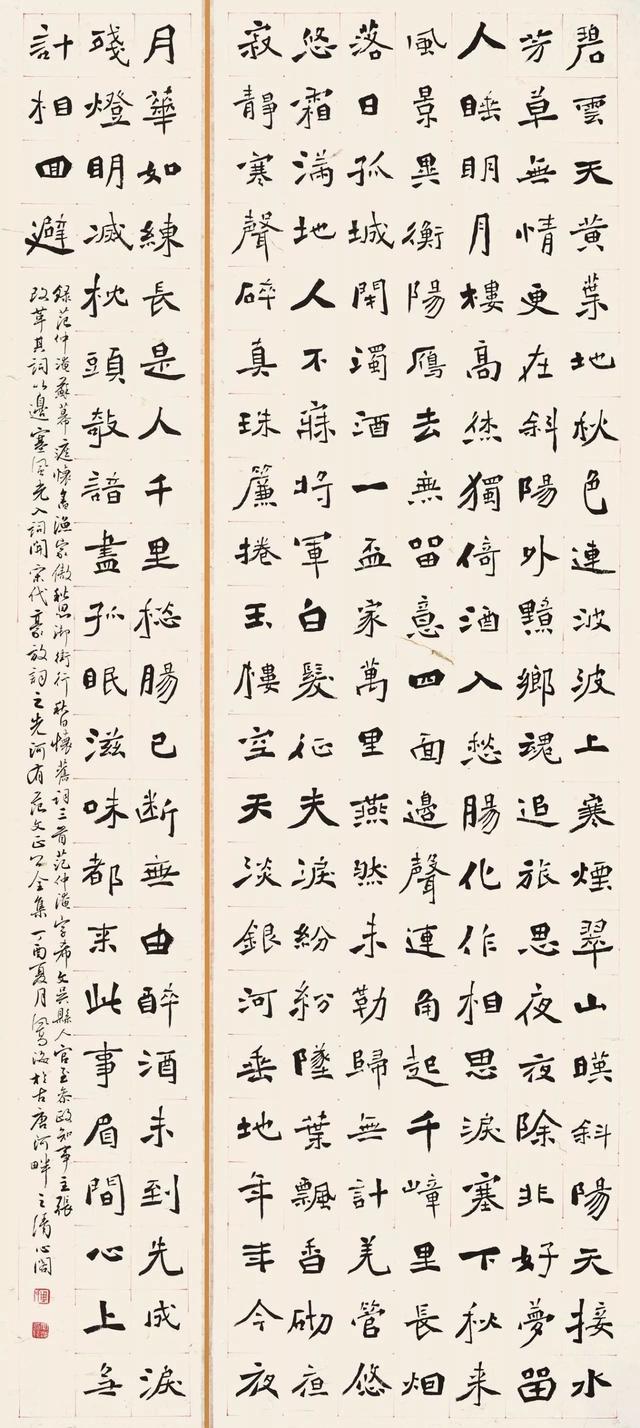 碧雲天黄葉地秋色連波波上寒煙翠山暎斜陽天接水
芳草無情更在斜陽外黯鄉魂追旅思夜夜除非好夢留
人睡明月樓高休獨倚酒入愁腸化作相思淚塞下秋来
風景異衡陽鴈去無留意四面邊聲連角起千嶂里長烟
落日孤城閉濁酒一盃家萬里燕然未勒歸無計羌管悠
悠霜滿地人不寐將軍白髮征夫淚紛紛墜葉飄香砌夜
寂靜寒聲碎真珠簾捲玉樓空天淡銀河垂地年年今夜
月華如練長是人千里愁腸已断無由醉酒未到先成淚
殘燈明滅枕頭敧諳盡孤眠滋味都来此事眉間心上無
計相回避
録范仲淹蘇幕遮懷舊漁家傲秋思御街行秋日懷舊詞三首范仲淹字希文吳縣人官至参政知事主張
改革其詞以邊塞風光入詞開宋代豪放詞之先河有范文正公全集丁酉夏月海於古唐河畔之清心閣